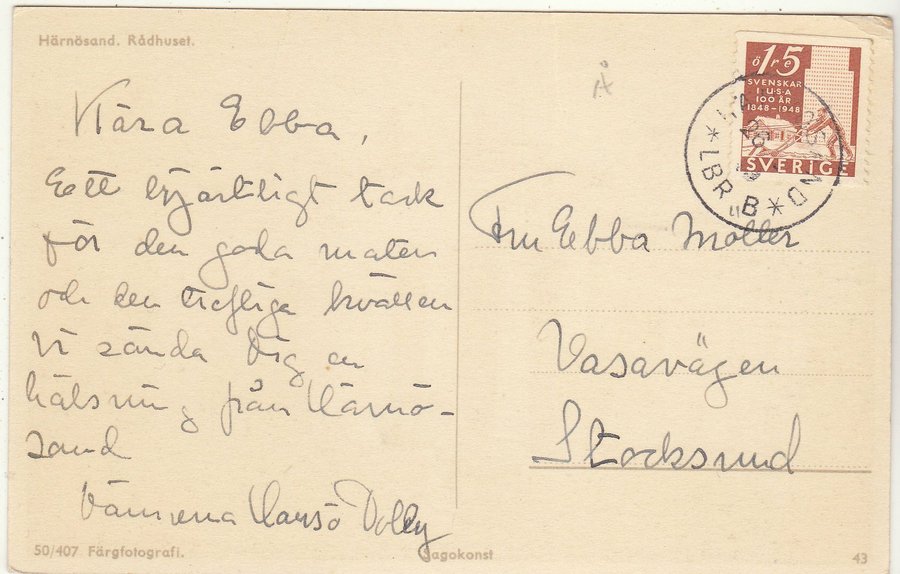 Härnösand. Rådhuset.
Kära Ebba,
Ett hjärtligt tack
för den goda maten
och den trefliga kvällen
Vi sända Dig en
hälsning från Härnö-
sand
Vännerna Dolly
50/407 Färgfotografi.
Sagokonst
43
Å
öre 15
SVENSKAR
I U.S.A
100 ÅR
1848-1948
SVERIGE
LBR
B
Fru Ebba Möller
Vasavägen
Stocksund